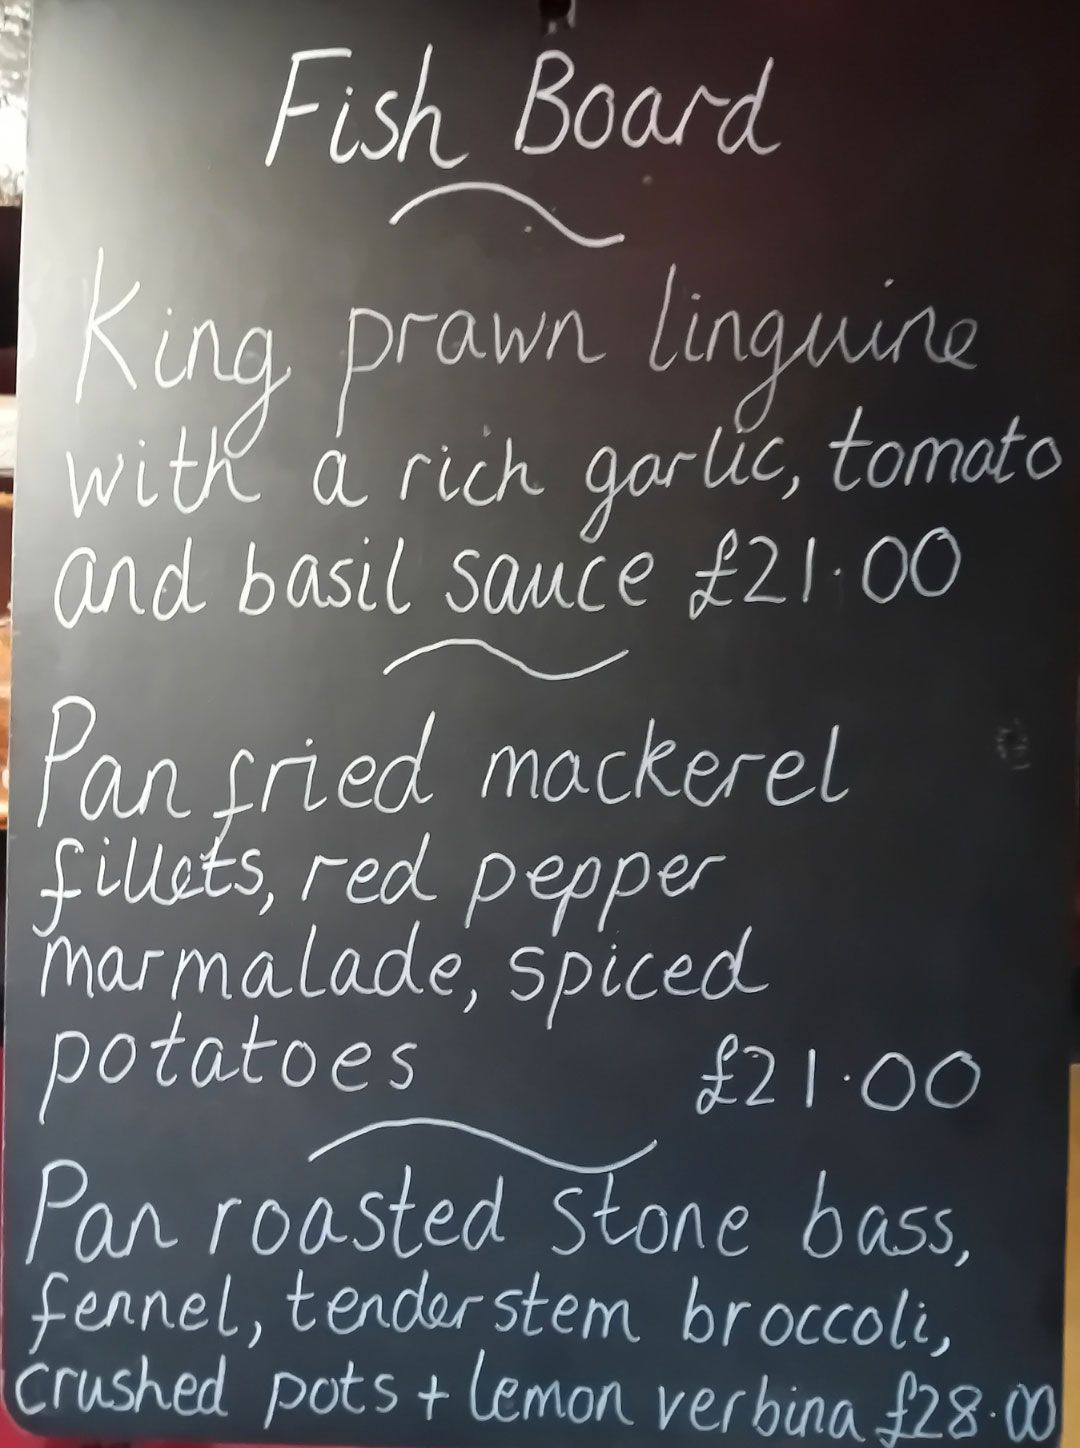 Fish Board
King prawn linguine
with a rich garlic, tomato
and basil sauce £21.00
Pan fried mackerel
fillets, red pepper
marmalade, spiced
potatoes £21.00
Pan roasted stone bass,
fennel, tenderstem broccoli,
crushed pots + lemon verbina £28.00